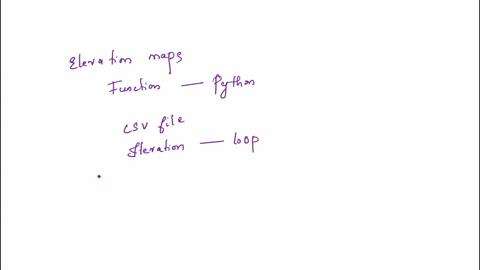 Elevation maps
Function — Python
CSV file
Iteration — loop